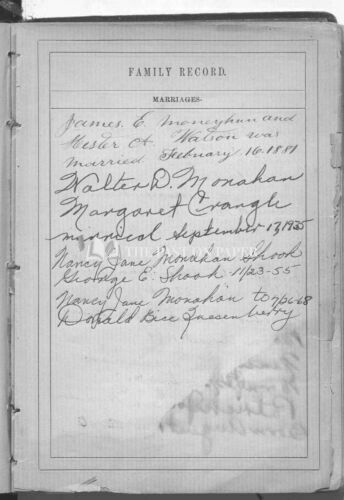 FAMILY RECORD.
MARRIAGES.
James. E. Moneyhun and
Hester A. Watson was
married February 16. 1881
Walter D. Monahan
Margaret Crangle
married September 17, 1935
Nancy Jane Monahan Shook
George E. Shook 11/23-55
Nancy Jane Monahan to 7/26-68
Donald Bice Quesenberry